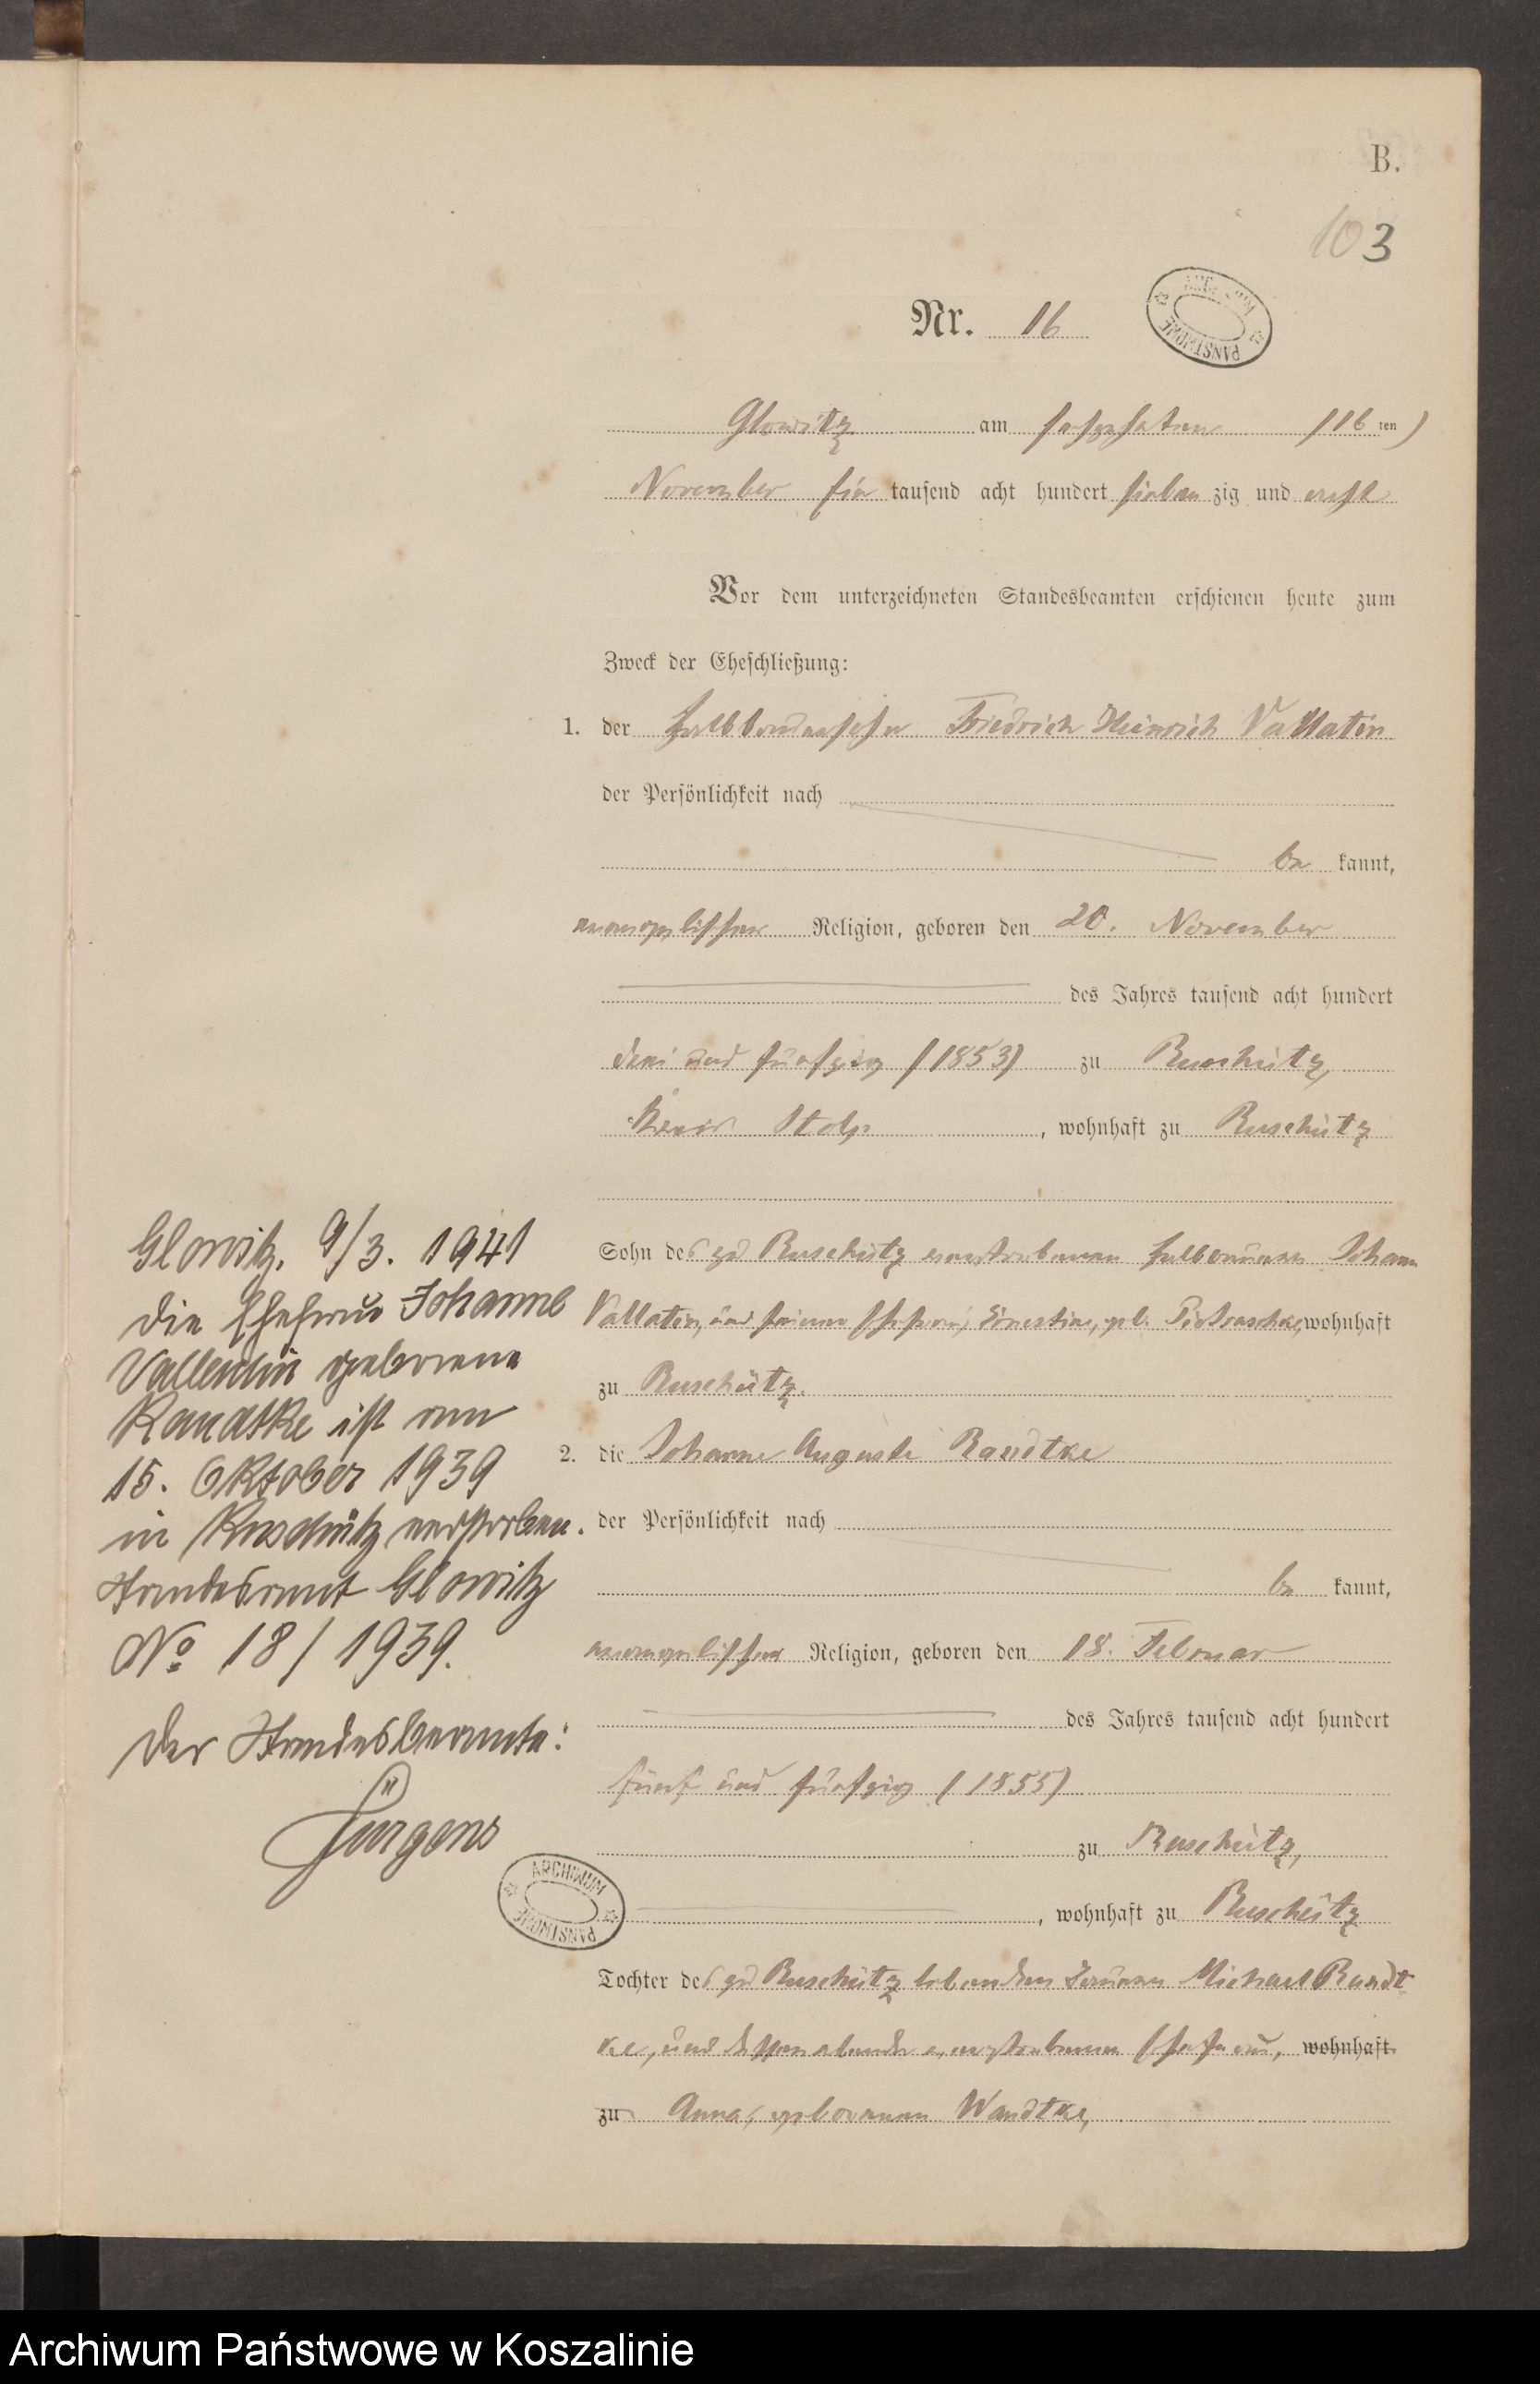 B.
103
Nr. 16
ARCHIWUM PAŃSTWOWE
Glowitz am sechszehnten (16ten)
November ein tausend acht hundert siebenzig und acht
Vor dem unterzeichneten Standesbeamten erschienen heute zum
Zweck der Eheschließung:
1. der Halbbauersohn Friedrich Heinrich Vallatin
der Persönlichkeit nach
bekannt,
evangelischer Religion, geboren den 20. November
des Jahres tausend acht hundert
drei und fünfzig (1853) zu Ruschütz,
Kreis Stolp, wohnhaft zu Ruschütz
Sohn des zu Ruschütz verstorbenen Halbbauern Johann
Vallatin, und seiner Ehefrau, Ernestine, geb. Pietraschke, wohnhaft
zu Ruschütz.
2. die Johanne Auguste Raudtke
der Persönlichkeit nach
bekannt,
evangelischer Religion, geboren den 18. Februar
des Jahres tausend acht hundert
fünf und fünfzig (1855)
zu Ruschütz,
, wohnhaft zu Ruschütz
Tochter des zu Ruschütz lebenden Michael Raudt
ke, und dessen verstorbenen Ehefrau, wohnhaft
zu Anna, geborenen Wandtke,
Glowitz, 9/3. 1941
Die Ehefrau Johanne
Vallentin geborene
Raudtke ist am
15. Oktober 1939
in Ruschütz verstorben.
Standesamt Glowitz
No 18/1939.
Der Standesbeamte:
Jürgens
ARCHIWUM PAŃSTWOWE
Archiwum Państwowe w Koszalinie